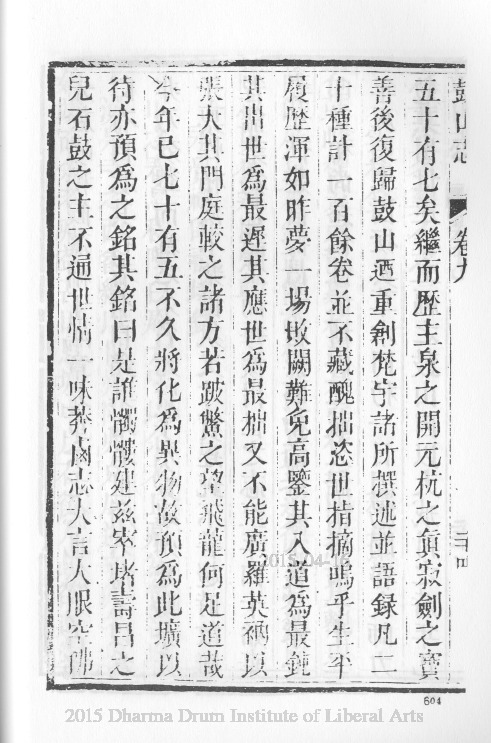 鼓山志 卷九
五十有七矣繼而歷主泉之開元杭之眞寂劍之寶
善後復歸鼓山迺重創梵宇諸所撰述並語録凡二
十種計一百餘卷並不藏醜拙恣世指摘嗚乎生平
履歷渾如昨夢一場敗闕難免高鑒其入道為最鈍
其出世為最遲其應世為最拙又不能廣羅英衲以
張大其門庭較之諸方若跛鱉之望飛龍何足道哉
今年已七十有五不久將化為異物故預為此壙以
待亦預爲之銘其銘曰是誰髑髏建兹窣堵壽昌之
兒石鼓之主不通世情一味莽鹵志大言大眼空佛
2015-04-
604
2015 Dharma Drum Institute of Liberal Arts